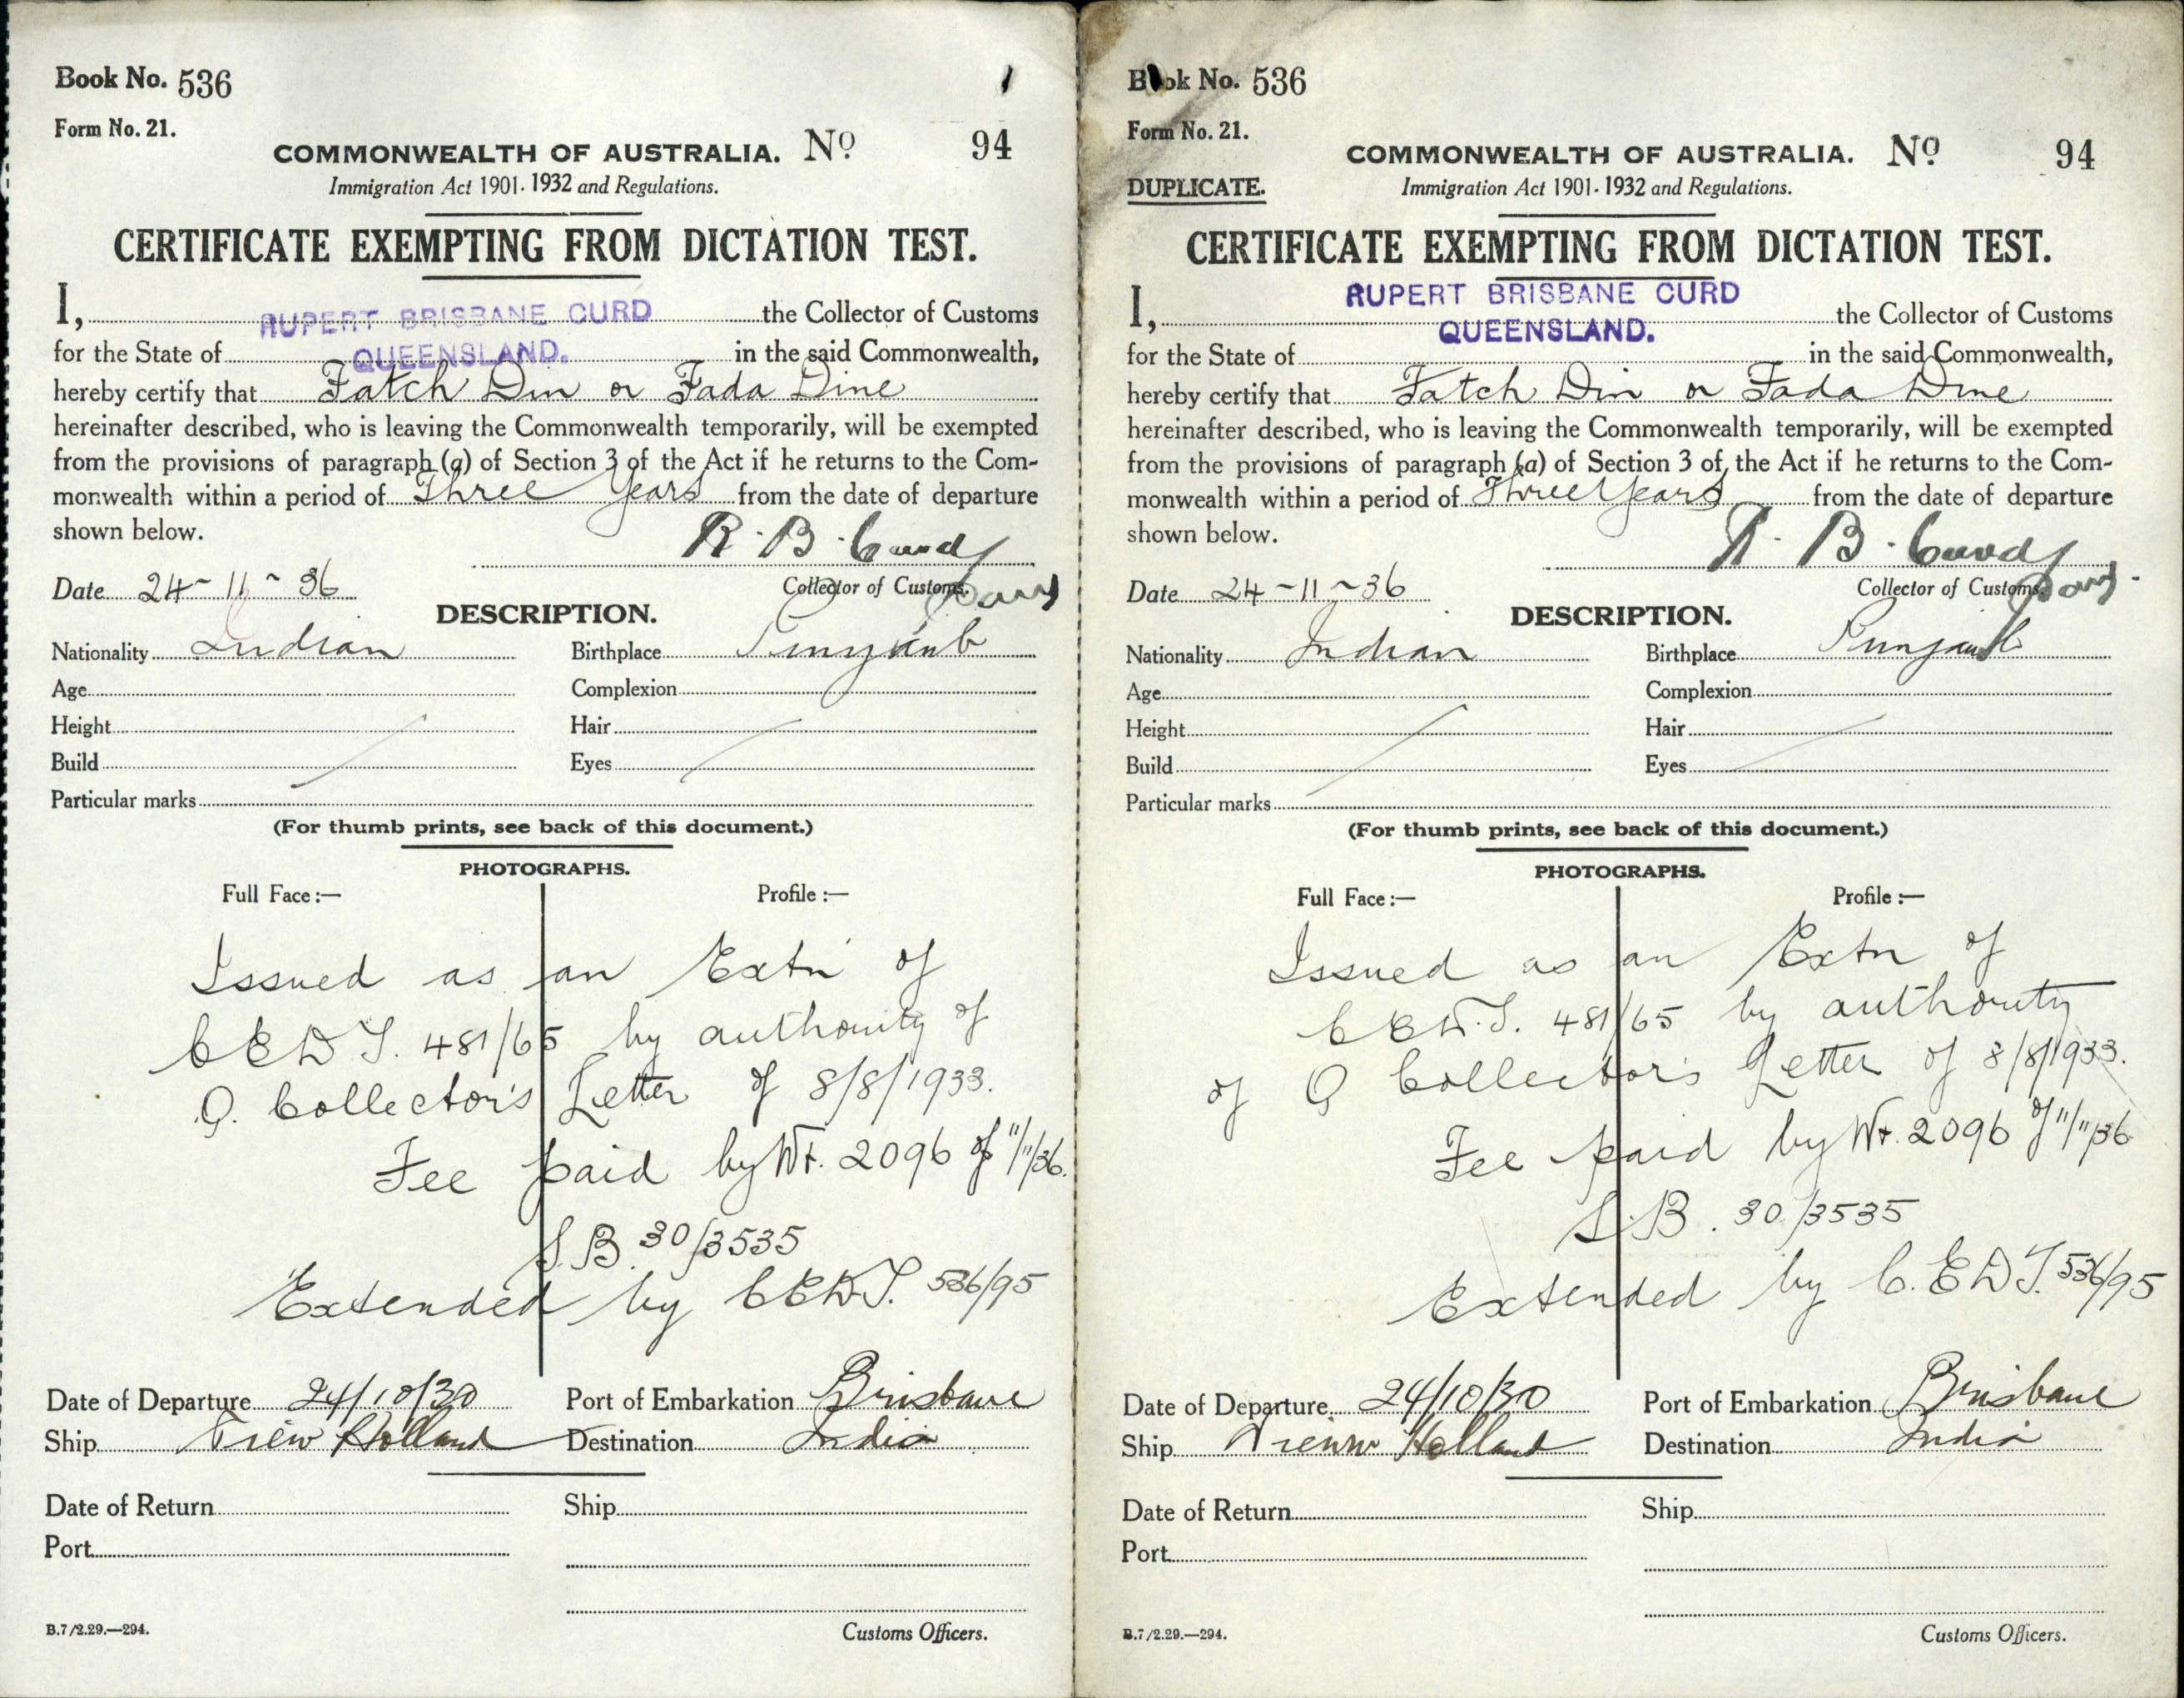 Book No. 536
Form No. 21.
COMMONWEALTH OF AUSTRALIA. No 94
Immigration Act 1901-1932 and Regulations.
CERTIFICATE EXEMPTING FROM DICTATION TEST.
I, RUPERT BRISBANE CURD the Collector of Customs
for the State of QUEENSLAND. in the said Commonwealth,
hereby certify that Fatch Din or Fada Dine
hereinafter described, who is leaving the Commonwealth temporarily, will be exempted
from the provisions of paragraph (a) of Section 3 of the Act if he returns to the Com-
monwealth within a period of Three Years from the date of departure
shown below.
R. B. Curd
Date 24-11-36 Collector of Customs.
DESCRIPTION.
Nationality Indian Birthplace Punjaub
Age Complexion
Height Hair
Build Eyes
Particular marks
(For thumb prints, see back of this document.)
PHOTOGRAPHS.
Full Face:— Profile:—
Issued as an Extn of
CEDT. 481/65 by authority of
Q. Collector's Letter of 8/8/1933.
Fee paid by Wt. 2096 of 11/11/36.
S.B. 30/3535
Extended by CEDT. 536/95
Date of Departure 24/10/30 Port of Embarkation Brisbane
Ship Holland Destination India
Date of Return Ship
Port
B.7/2.29.—294. Customs Officers.
Book No. 536
Form No. 21.
COMMONWEALTH OF AUSTRALIA. No 94
DUPLICATE. Immigration Act 1901-1932 and Regulations.
CERTIFICATE EXEMPTING FROM DICTATION TEST.
RUPERT BRISBANE CURD
I, QUEENSLAND. the Collector of Customs
for the State of in the said Commonwealth,
hereby certify that Fatch Din or Fada Dine
hereinafter described, who is leaving the Commonwealth temporarily, will be exempted
from the provisions of paragraph (a) of Section 3 of the Act if he returns to the Com-
monwealth within a period of Three Years from the date of departure
shown below.
R. B. Curd
Date 24-11-36 Collector of Customs.
DESCRIPTION.
Nationality Indian Birthplace Punjaub
Age Complexion
Height Hair
Build Eyes
Particular marks
(For thumb prints, see back of this document.)
PHOTOGRAPHS.
Full Face:— Profile:—
Issued as an Extn of
CED.T. 481/65 by authority
of Q Collector's Letter of 8/8/1933.
Fee paid by Wt. 2096 of 11/11/36
S.B. 30/3535
Extended by C.EDT. 536/95
Date of Departure 24/10/30 Port of Embarkation Brisbane
Ship Holland Destination India
Date of Return Ship
Port
B.7/2.29.—294. Customs Officers.